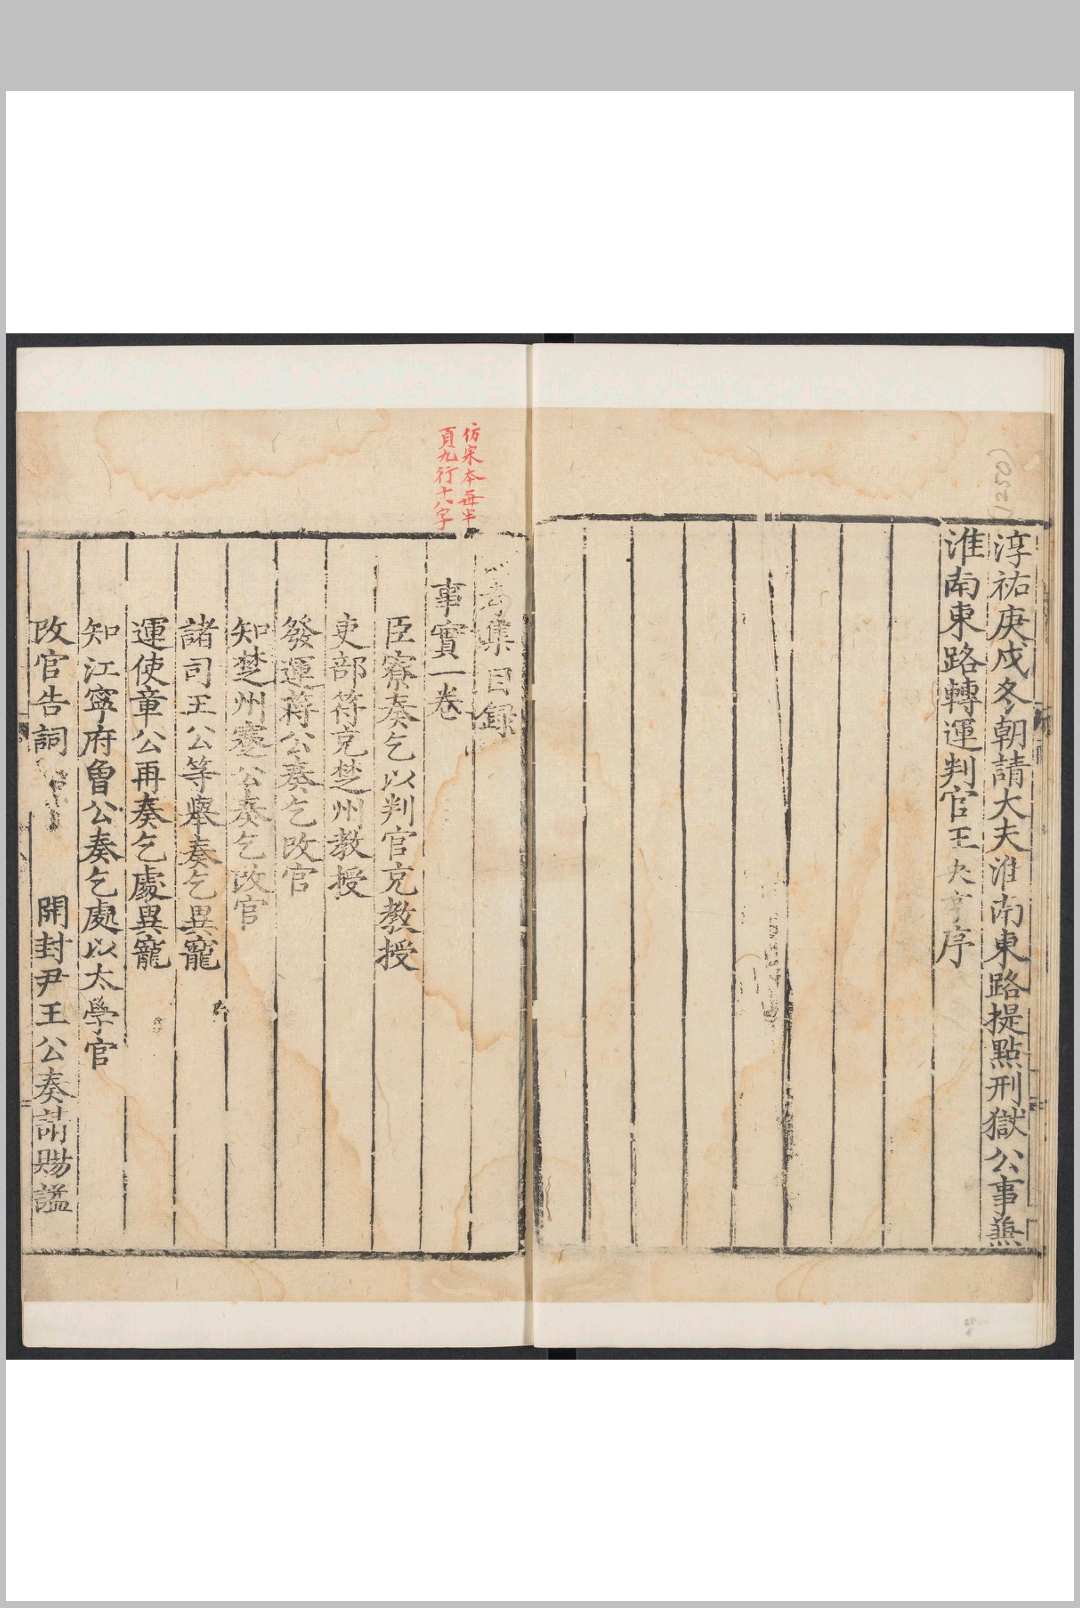 淳祐庚戌冬朝請大夫淮南東路提點刑獄公事兼
淮南東路轉運判官王夬亨序
(1250)
仿宋本每半
頁九行十八字
集目録
事實一卷
臣寮奏乞以判官充教授
吏部符充楚州教授
發運蔣公奏乞改官
知楚州蹇公奏乞改官
諸司王公等舉奏乞異寵
運使章公再奏乞處異寵
知江寧府曾公奏乞處以太學官
改官告詞 開封尹王公奏請賜謚